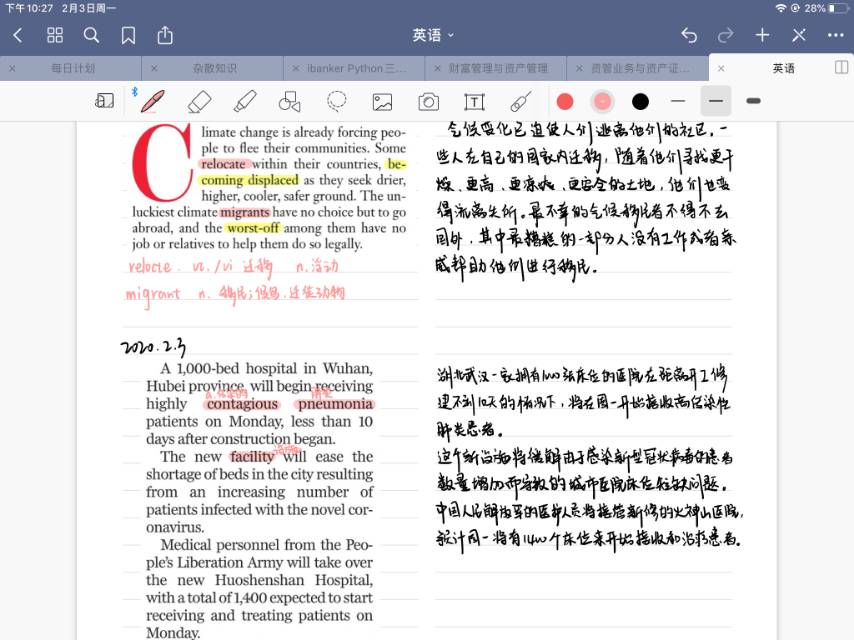 下午10:27 2月3日周一
28%
英语
每日计划
杂散知识
ibanker Python三...
财富管理与资产管理
资管业务与资产证...
英语
Climate change is already forcing peo-
ple to flee their communities. Some
relocate within their countries, be-
coming displaced as they seek drier,
higher, cooler, safer ground. The un-
luckiest climate migrants have no choice but to go
abroad, and the worst-off among them have no
job or relatives to help them do so legally.
relocte. vt./vi 迁移 n.活动
migrant n. 移民;候鸟,迁徙动物
气候变化已迫使人们逃离他们的社区。一
些人在自己的国家内迁移,随着他们寻找更干
燥、更高、更凉爽、更安全的土地,他们也变
得流离失所。最不幸的气候移民者不得不去
国外,其中最糟糕的一部分人没有工作或者亲
戚帮助他们进行移民。
2020.2.3
A 1,000-bed hospital in Wuhan,
Hubei province, will begin receiving
a.传染的 肺炎
highly contagious pneumonia
patients on Monday, less than 10
days after construction began.
The new facility will ease the
shortage of beds in the city resulting
from an increasing number of
patients infected with the novel cor-
onavirus.
Medical personnel from the Peo-
ple's Liberation Army will take over
the new Huoshenshan Hospital,
with a total of 1,400 expected to start
receiving and treating patients on
Monday.
湖北武汉一家拥有1000张床位的医院在距离开工修
建不到10天的情况下,将在周一开始接收高传染性
肺炎患者。
这个新设施将缓解由于感染新型冠状病毒的患者
数量增加而导致的城市医院床位短缺问题。
中国人民解放军的医护人员将接管新修的火神山医院,
预计周一将有1400个床位来开始接收和治疗患者。